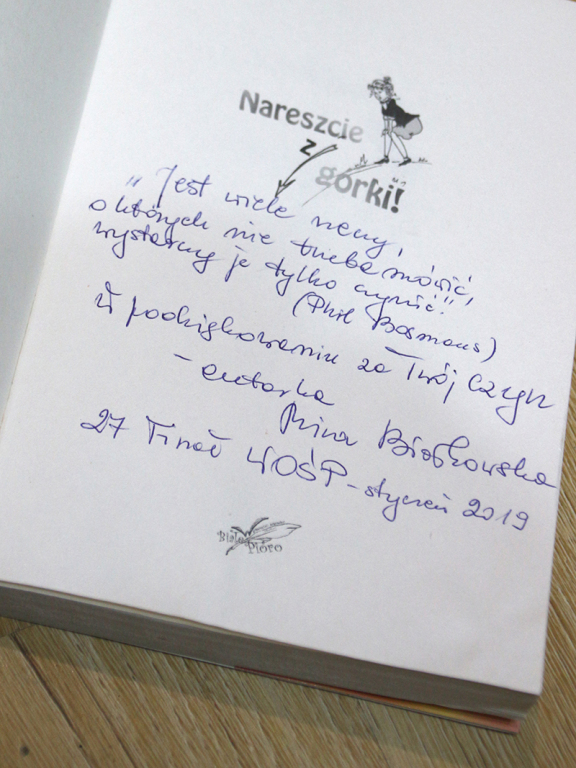 Nareszcie
z
górki!
„Jest wiele rzeczy,
o których nie trzeba mówić,
wystarczy je tylko czynić."
(Phil Bosmans)
W podziękowaniu za Twój Czyn
- autorka
27 Finał WOŚP - styczeń 2019
Białe
Pióro